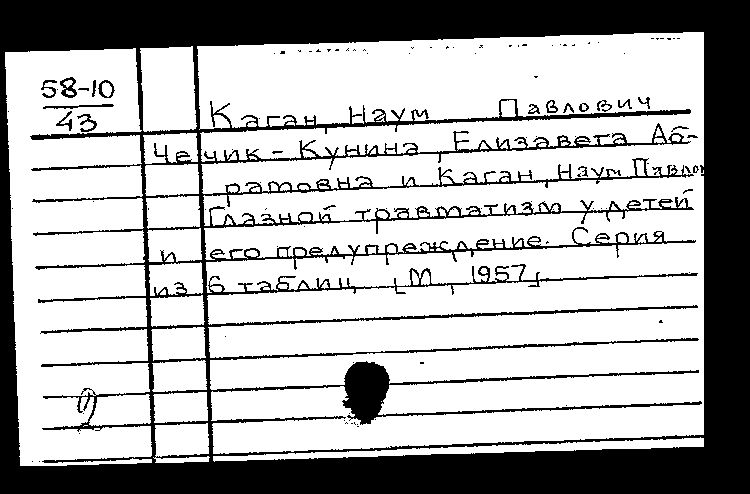 58-10
43
Каган, Наум Павлович
Чечик-Кунина, Елизавета Аб-
рамовна и Каган, Наум Павлов
Глазной травматизм у детей
и его предупреждение. Серия
из 6 таблиц [М, 1957]